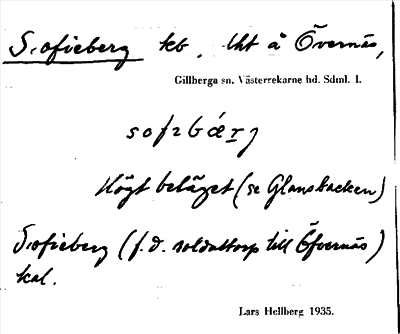 Sofieberg kb, lht å Övernäs,
Gillberga sn. Västerrekarne hd. Sdml. l.
sofɩbærj
Högt beläget (se Glansbacken)
Sofieberg (f.d. soldattorp till Öfvernäs)
kal.
Lars Hellberg 1935.